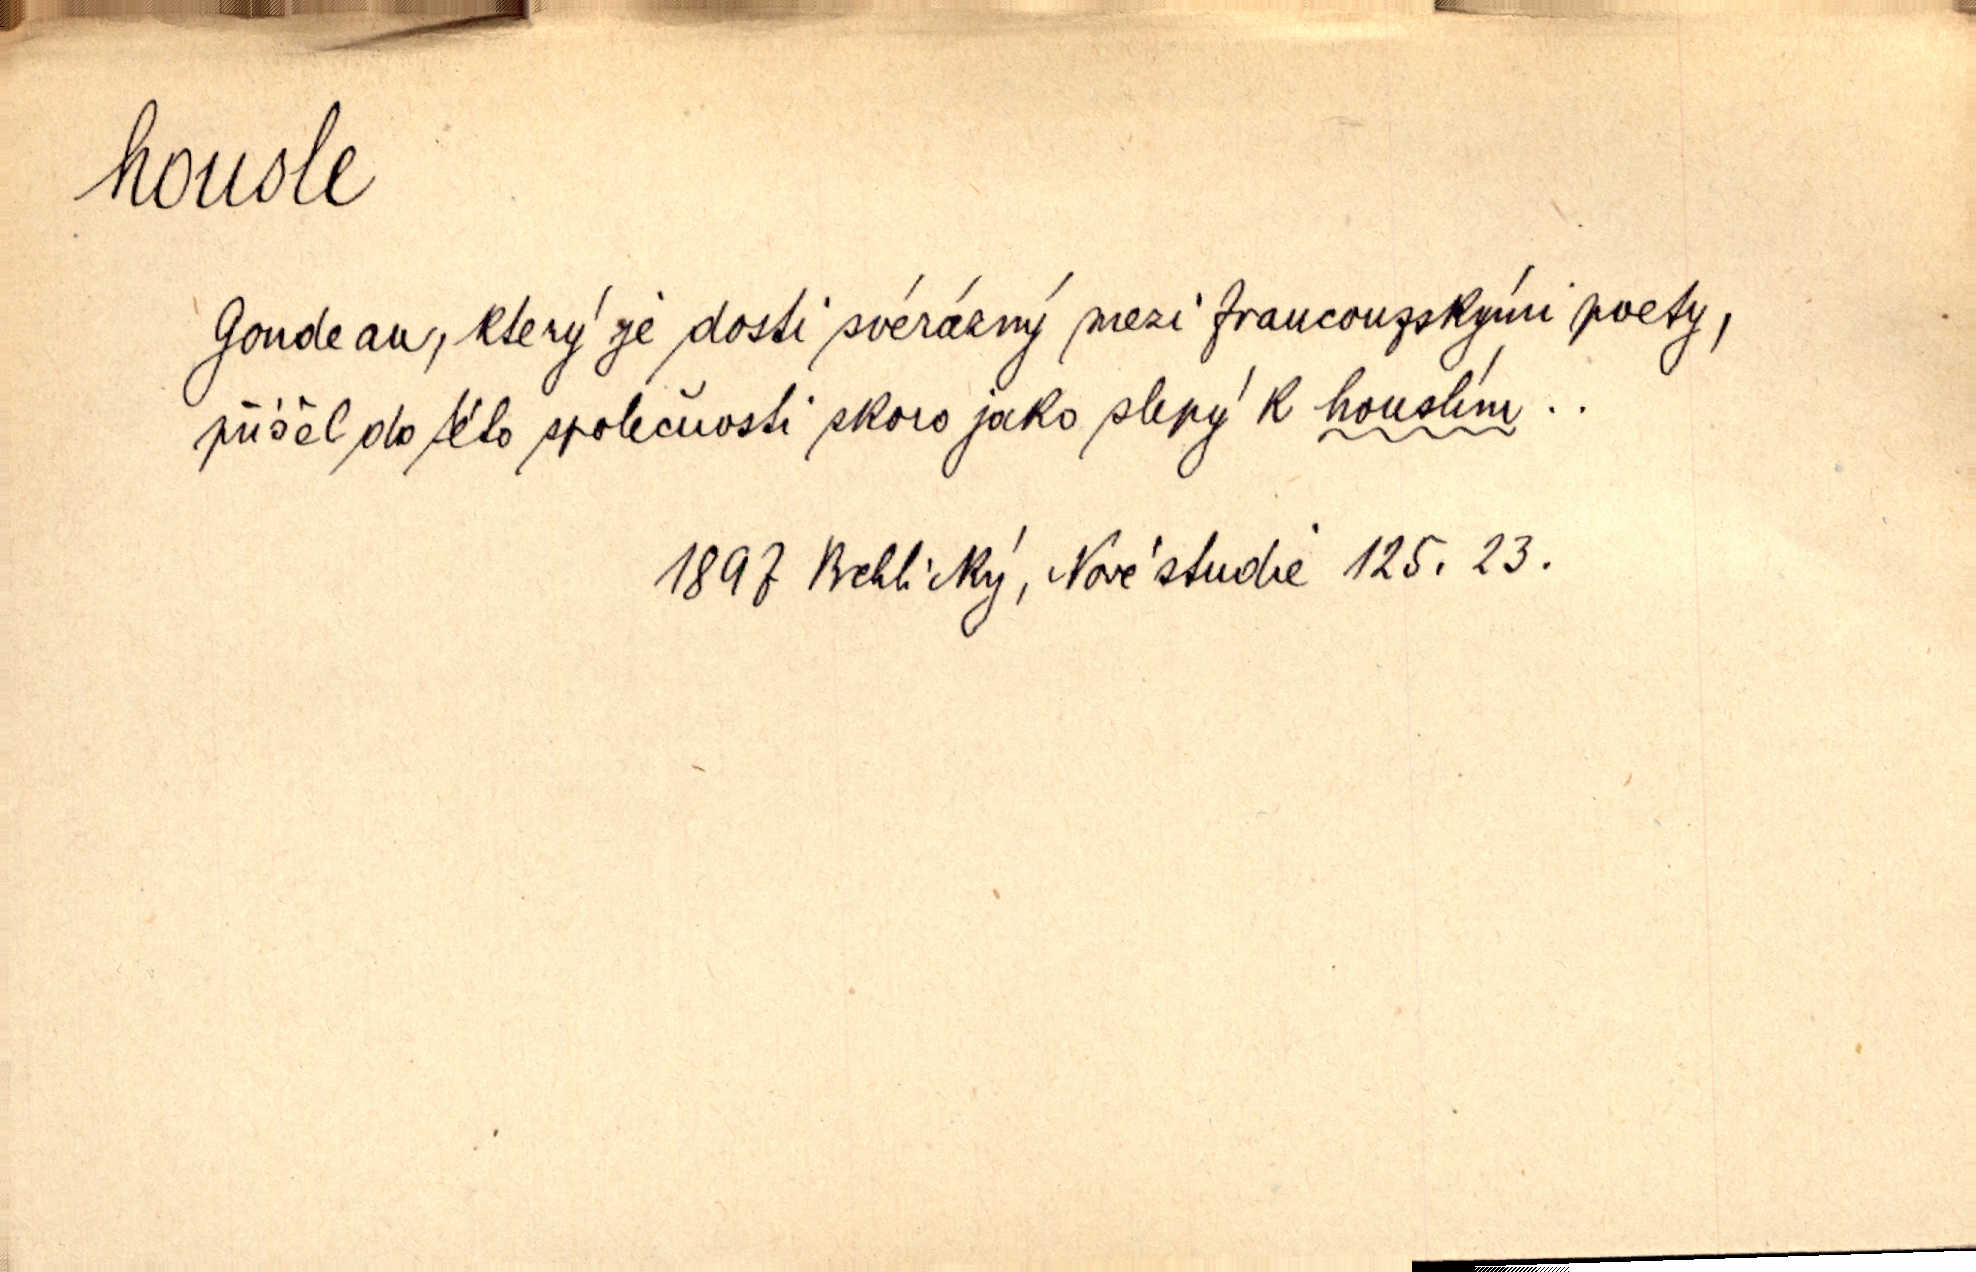 housle
Goudeau, který je dosti svérázný mezi francouzskými poety,
přišel do této společnosti skoro jako slepý k houslím..
1897 Vrchlický, Nové studie 125. 23.